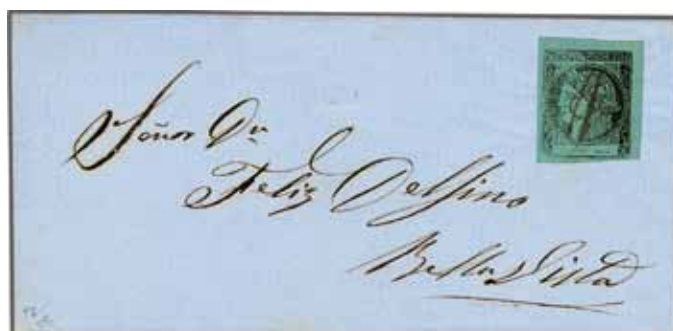 Señor Dn.
Feliz Delfino
Bella Vista